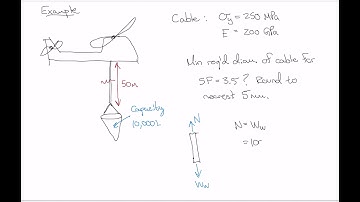 Example
Cable: σy = 250 MPa
E = 200 GPa
Min req'd diam. of cable for
SF = 3.5? Round to
nearest 5mm.
50m
Capacity
10,000L
N
N = Ww
= 10
Ww